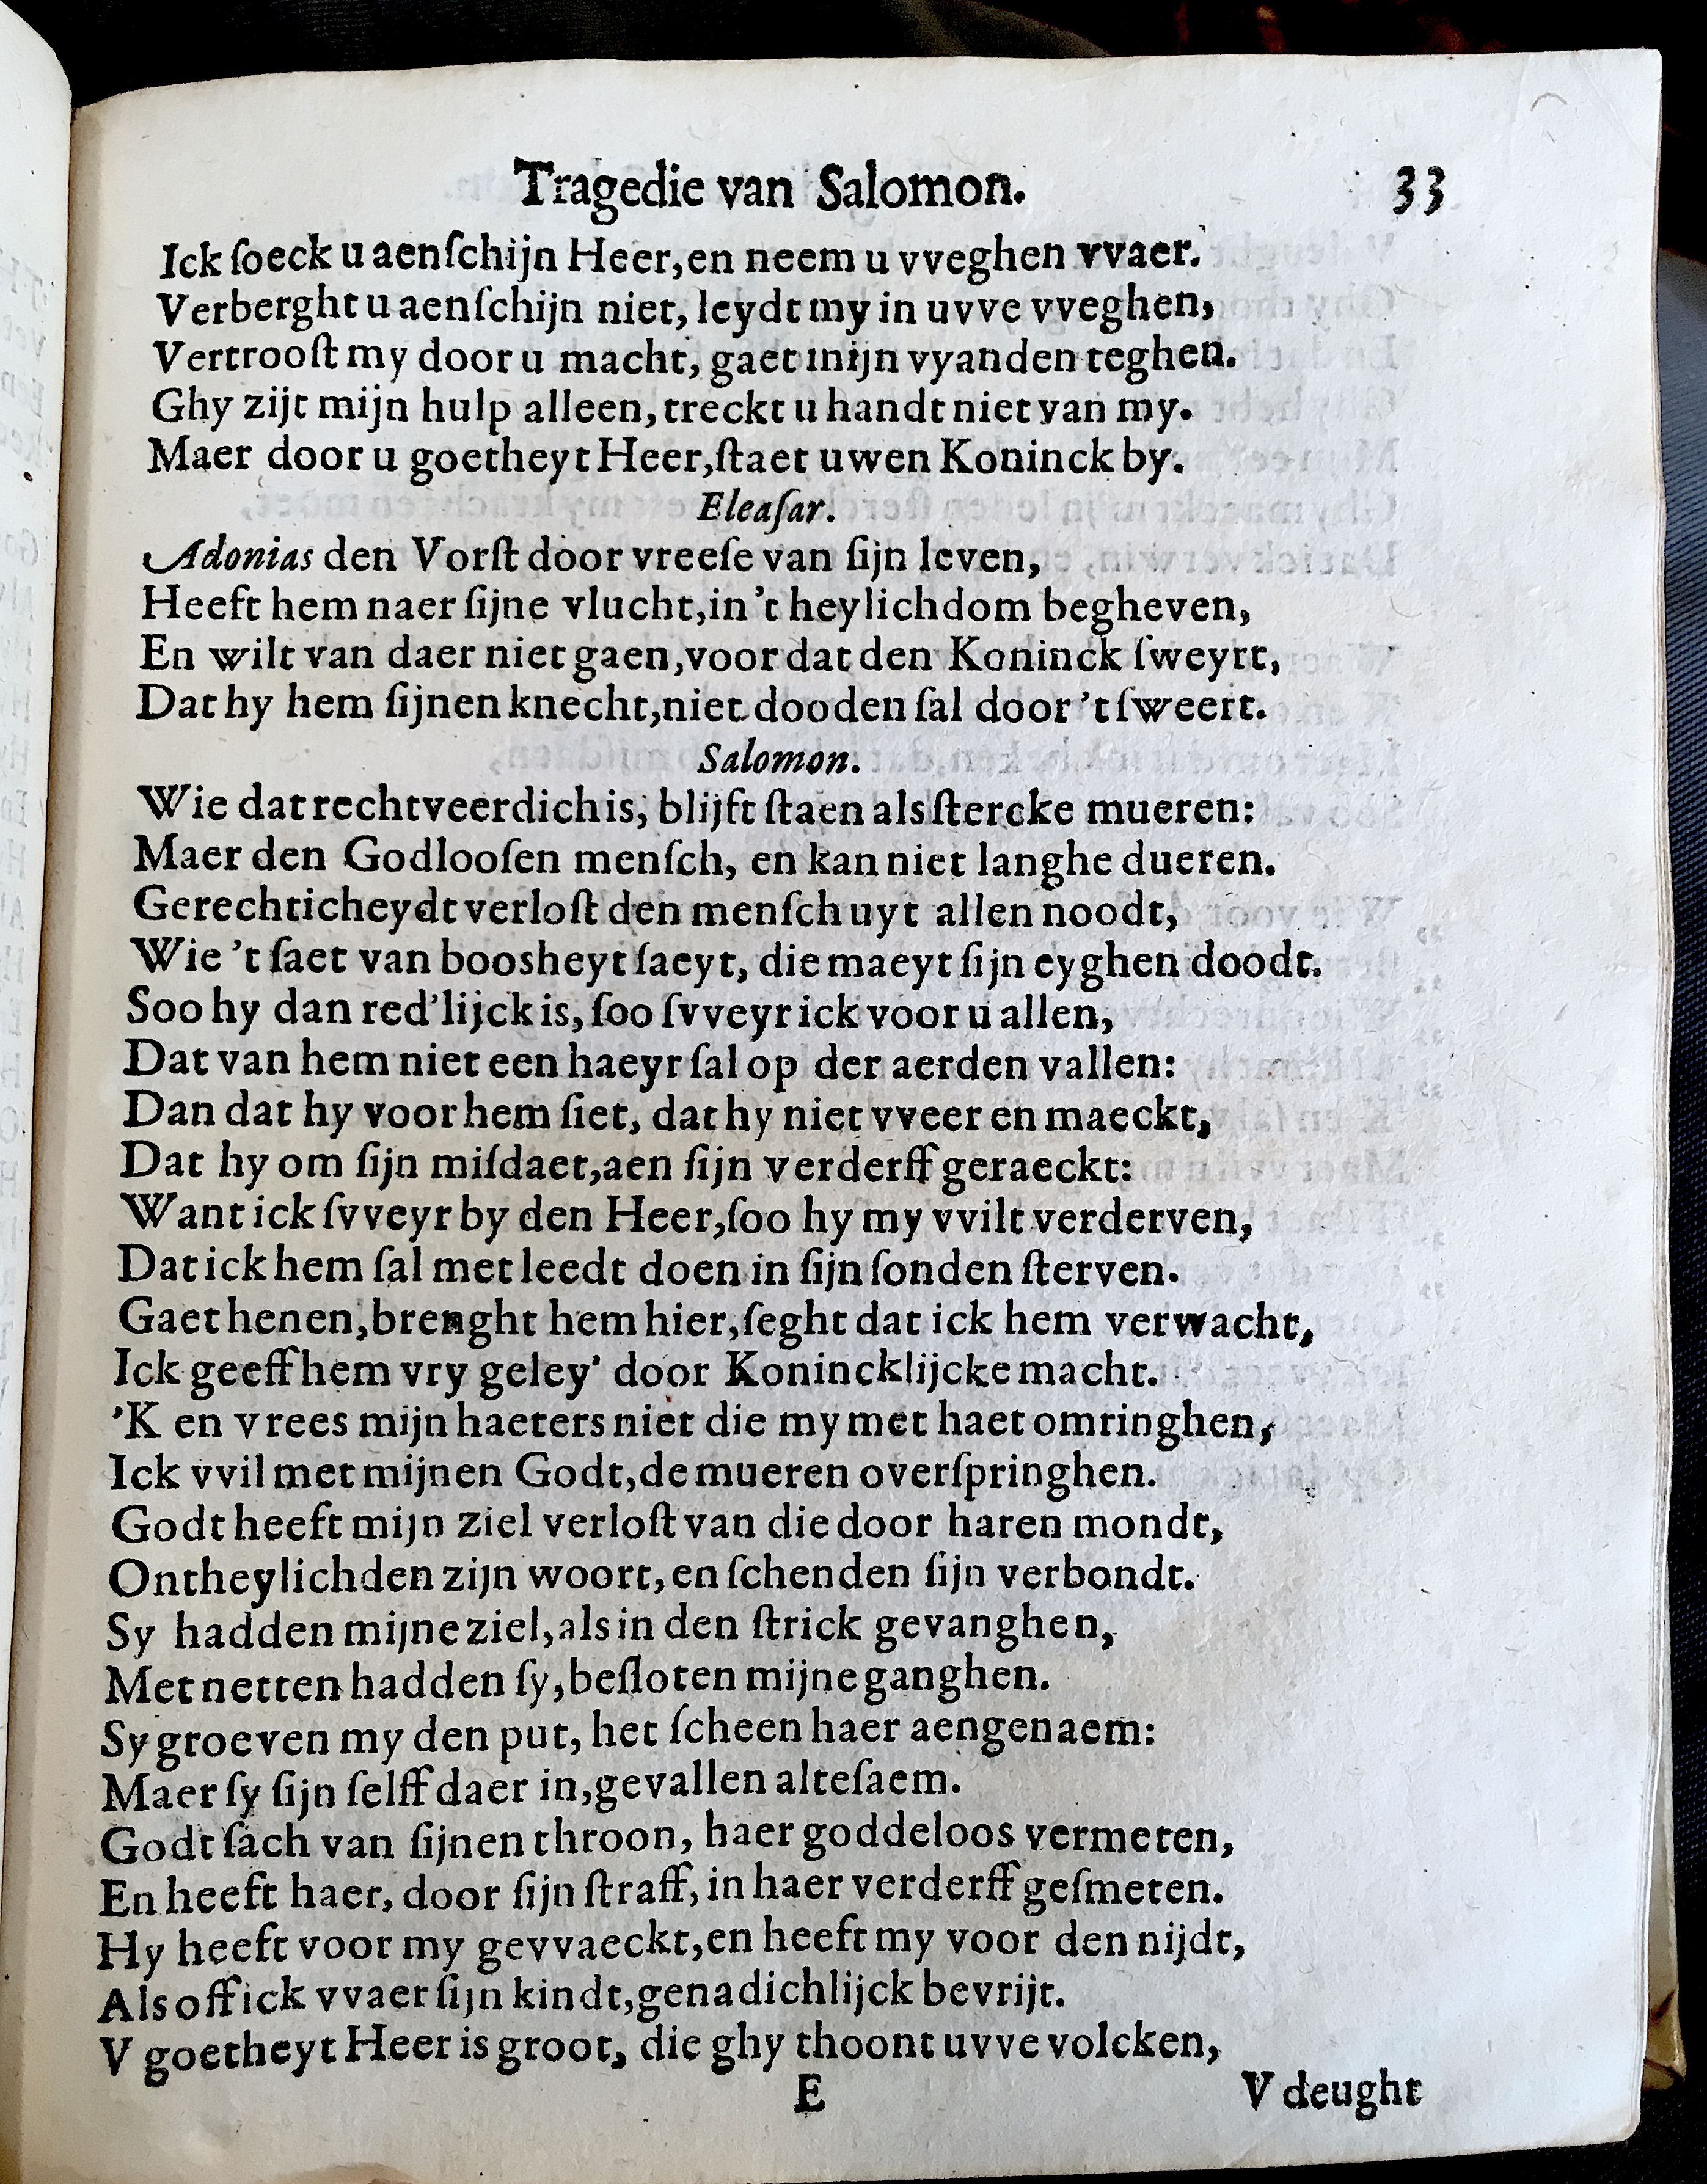 Tragedie van Salomon. 33
Ick ſoeck u aenſchijn Heer, en neem u vveghen vvaer.
Verberght u aenſchijn niet, leydt my in uvve vveghen,
Vertrooſt my door u macht, gaet mijn vyanden teghen.
Ghy zijt mijn hulp alleen, treckt u handt niet van my.
Maer door u goetheyt Heer, ſtaet uwen Koninck by.
Eleaſar.
Adonias den Vorſt door vreeſe van ſijn leven,
Heeft hem naer ſijne vlucht, in 't heylichdom begheven,
En wilt van daer niet gaen, voor dat den Koninck ſweyrt,
Dat hy hem ſijnen knecht, niet dooden ſal door 't ſweert.
Salomon.
Wie dat rechtveerdich is, blijft ſtaen als ſtercke mueren:
Maer den Godlooſen menſch, en kan niet langhe dueren.
Gerechticheydt verloſt den menſch uyt allen noodt,
Wie 't ſaet van boosheyt ſaeyt, die maeyt ſijn eyghen doodt.
Soo hy dan red'lijck is, ſoo ſvveyr ick voor u allen,
Dat van hem niet een haeyr ſal op der aerden vallen:
Dan dat hy voor hem ſiet, dat hy niet vveer en maeckt,
Dat hy om ſijn miſdaet, aen ſijn verderff geraeckt:
Want ick ſvveyr by den Heer, ſoo hy my vvilt verderven,
Dat ick hem ſal met leedt doen in ſijn ſonden ſterven.
Gaet henen, brenght hem hier, ſeght dat ick hem verwacht,
Ick geeff hem vry geley' door Konincklijcke macht.
'K en vrees mijn haeters niet die my met haet omringhen,
Ick vvil met mijnen Godt, de mueren overſpringhen.
Godt heeft mijn ziel verloſt van die door haren mondt,
Ontheylichden zijn woort, en ſchenden ſijn verbondt.
Sy hadden mijne ziel, als in den ſtrick gevanghen,
Met netten hadden ſy, beſloten mijne ganghen.
Sy groeven my den put, het ſcheen haer aengenaem:
Maer ſy ſijn ſelff daer in, gevallen alteſaem.
Godt ſach van ſijnen throon, haer goddeloos vermeten,
En heeft haer, door ſijn ſtraff, in haer verderff geſmeten.
Hy heeft voor my gevvaeckt, en heeft my voor den nijdt,
Als off ick vvaer ſijn kindt, genadichlijck bevrijt.
V goetheyt Heer is groot, die ghy thoont uvve volcken,
E V deught